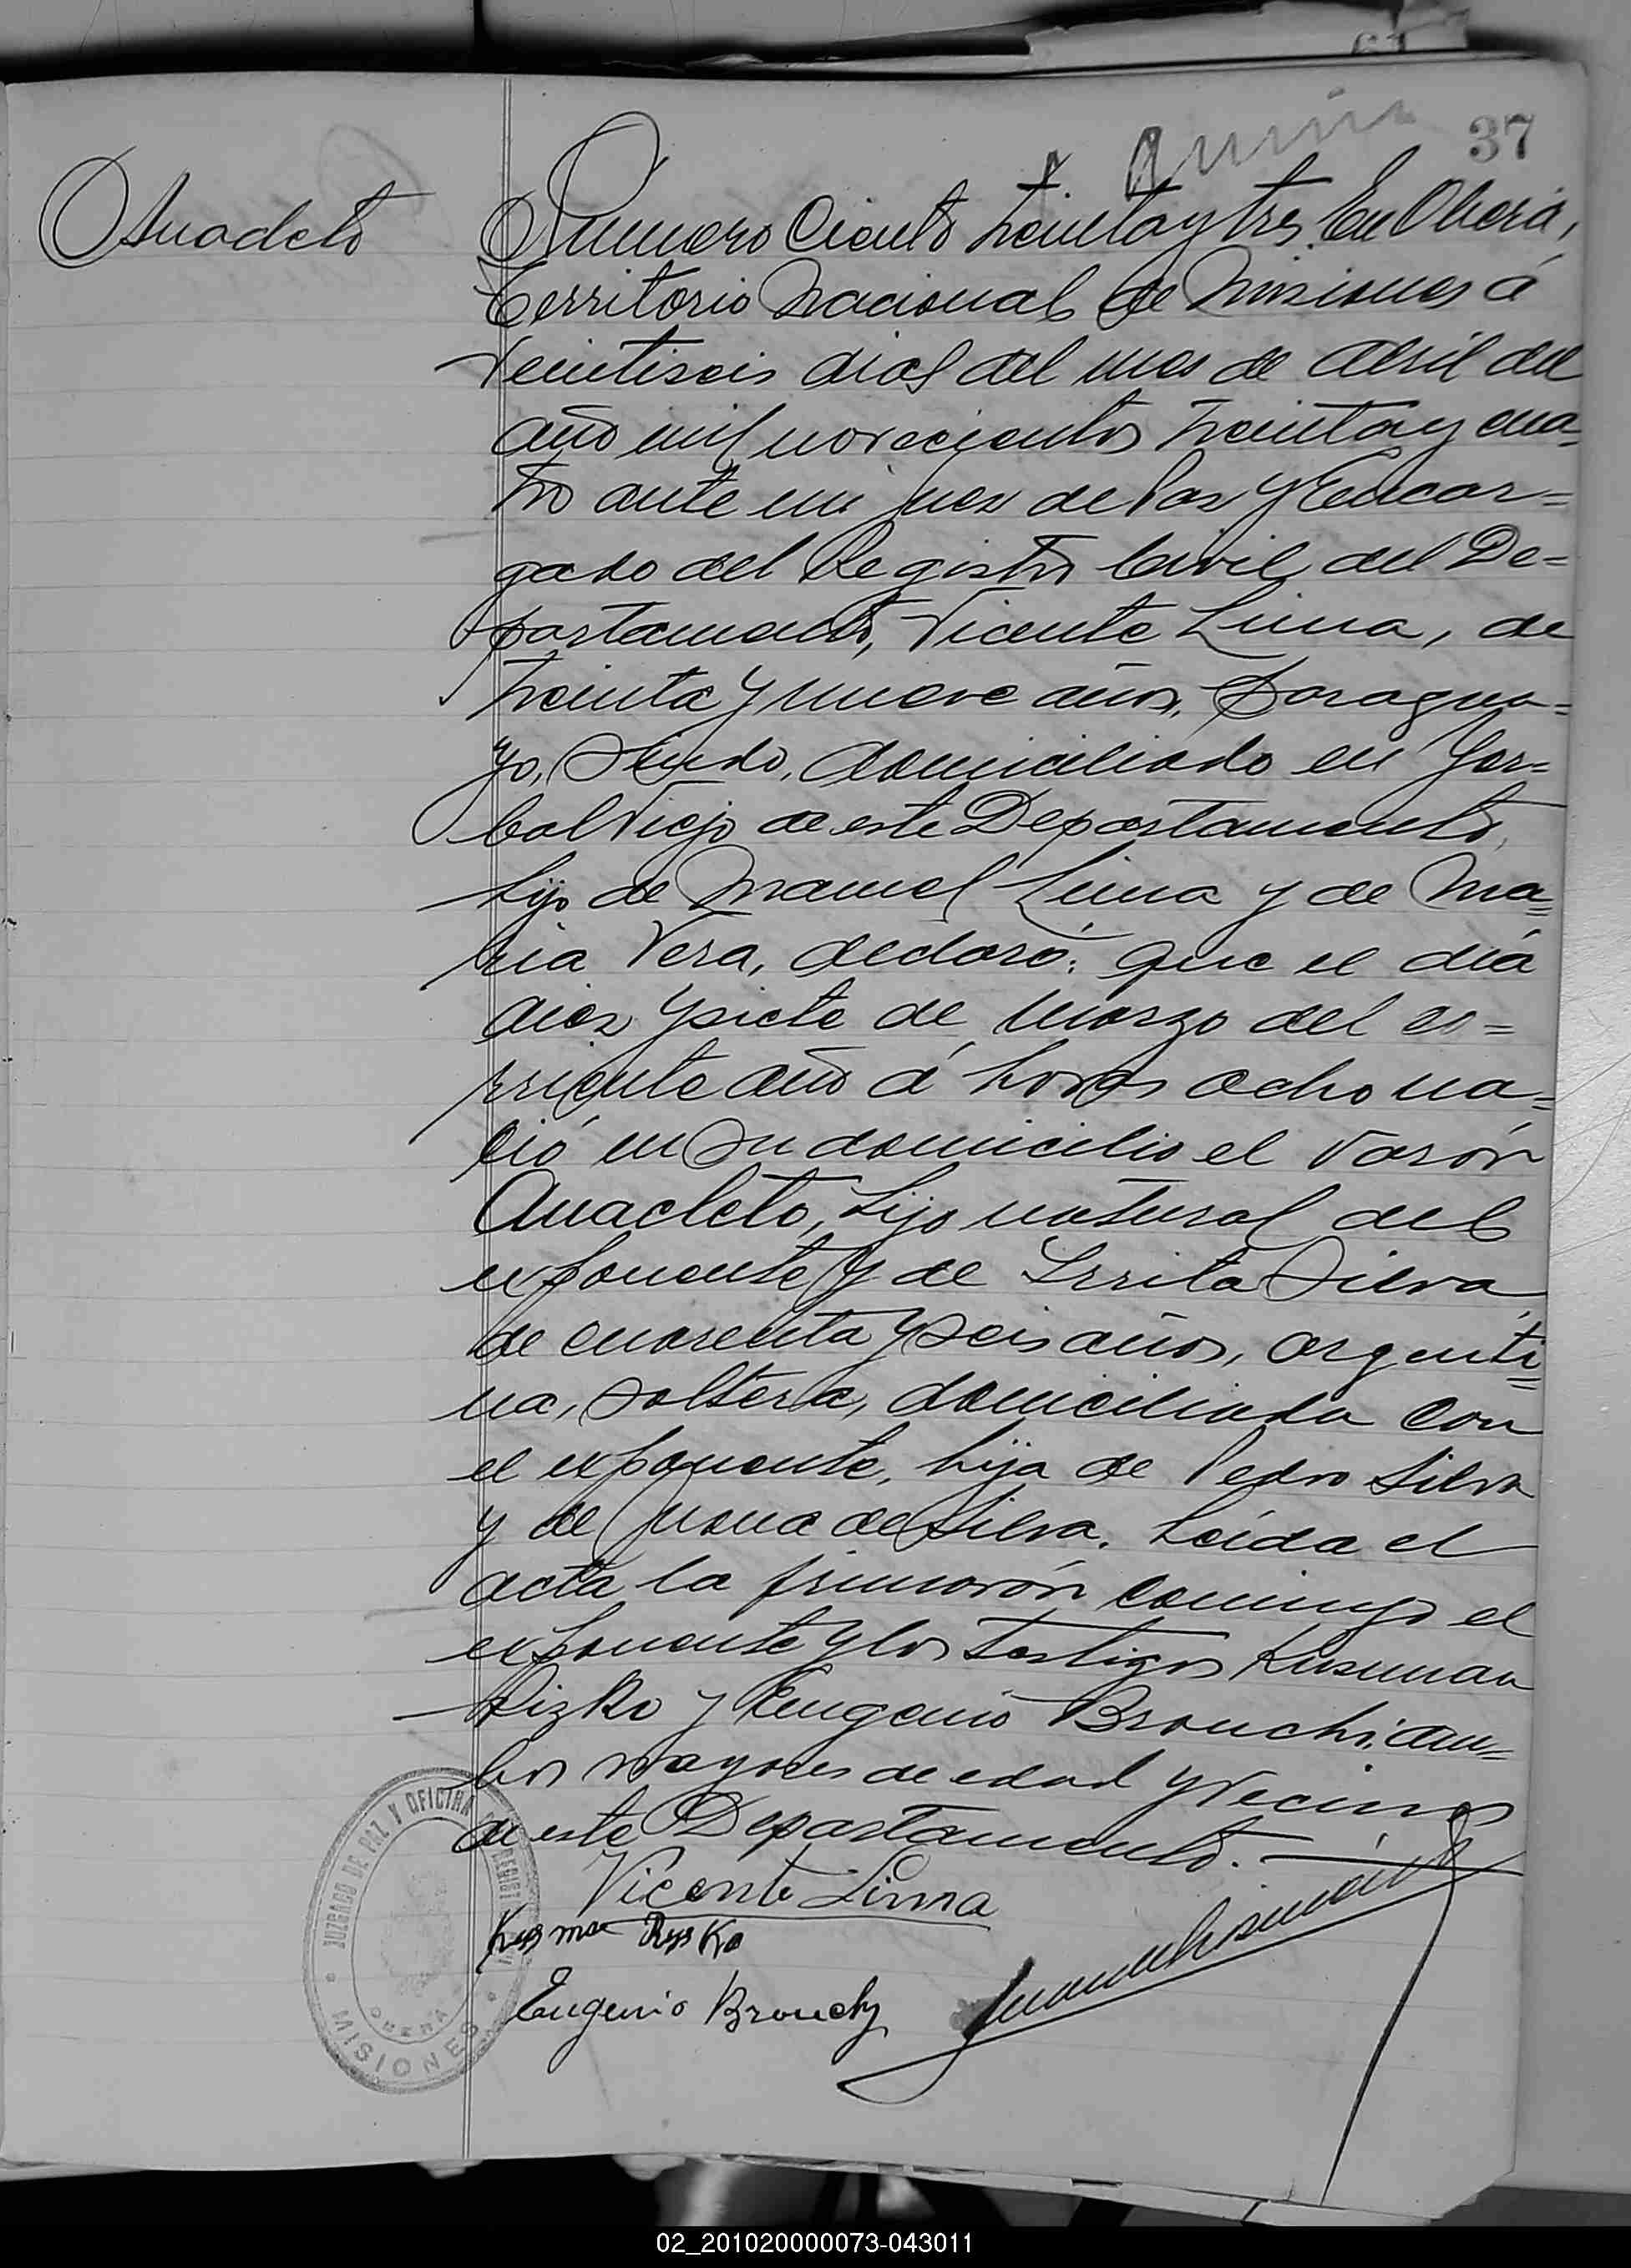 37
Anacleto
Numero Ciento treinta y tres. En Oberá,
Territorio Nacional de Misiones á
veintiseis dias del mes de Abril del
año mil novecientos treinta y cua=
tro ante mi Juez de Paz y Encar=
gado del Registro Civil del De=
partamento, Vicente Lima, de
treinta y nueve años, paragua=
yo, viudo, domiciliado en Yer=
bal Viejo de este Departamento,
hijo de Manuel Lima y de Ma=
ria Vera, declaró: que el día
diez y siete de Marzo del co=
rriente año á horas ocho na=
ció en su domicilio el varón
Anacleto, hijo natural del
exponente y de Silva,
de cuarenta y seis años, argenti=
na, soltera, domiciliada con
el exponente, hija de Pedro Silva
y de Juana de Silva. Leída el
acta la firmarón conmigo el
exponente y los testigos Kusman
Rizko y Eugenio Bronchi, am=
bos mayores de edad y vecinos
de este Departamento.
Vicente Lima
Kusma Rysko
Eugenio Brouchy
JUZGADO DE PAZ Y OFICINA DE REGISTRO
OBERÁ
MISIONES
02_201020000073-043011